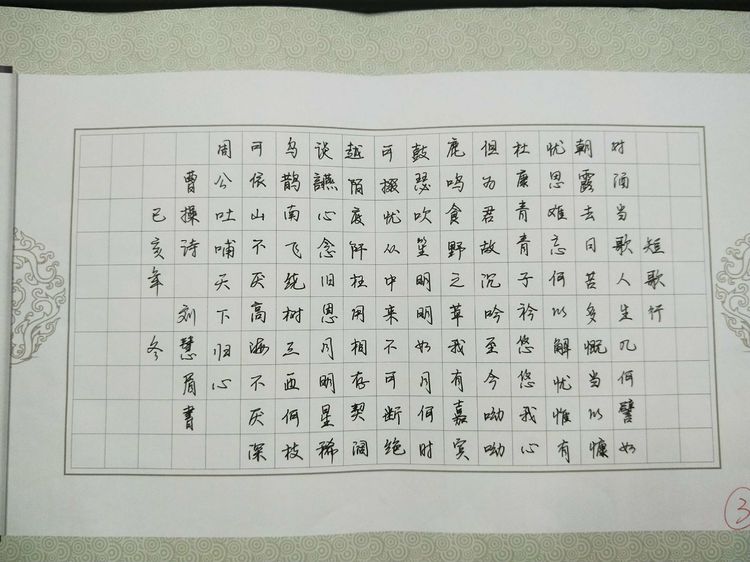 短歌行
对酒当歌人生几何譬如
朝露去日苦多慨当以慷
忧思难忘何以解忧惟有
杜康青青子衿悠悠我心
但为君故沉吟至今呦呦
鹿鸣食野之苹我有嘉宾
鼓瑟吹笙明明如月何时
可掇忧从中来不可断绝
越陌度阡枉用相存契阔
谈讌心念旧恩月明星稀
乌鹊南飞绕树三匝何枝
可依山不厌高海不厌深
周公吐哺天下归心
曹操诗 刘慧眉书
己亥年 冬
3